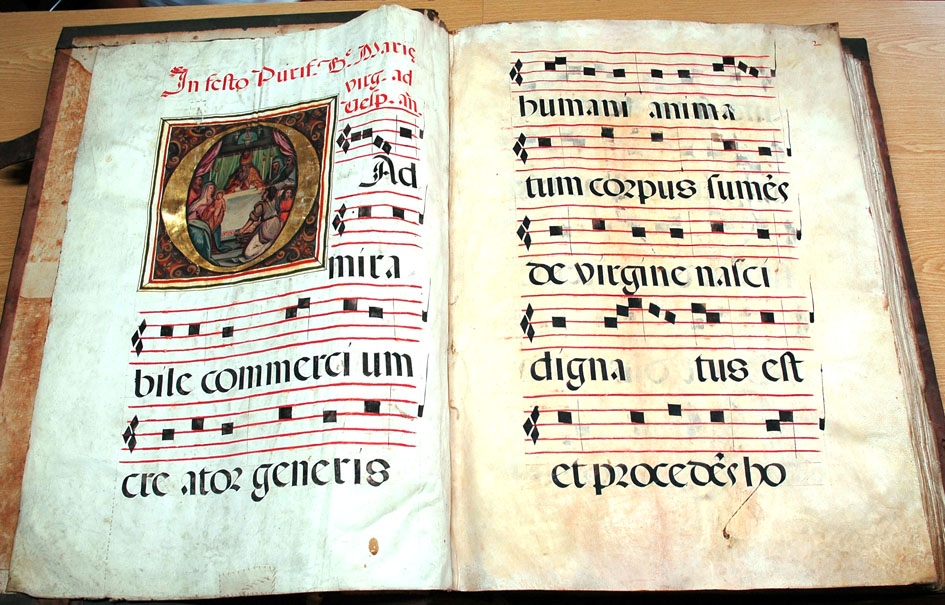 In festo Purif. B. Marię
virg. ad
Vesp. añ
O Ad
mira
bile commerci um
cre ator generis
2
humani anima
tum corpus ſumẽs
de virgine naſci
digna tus est
et procedẽs ho